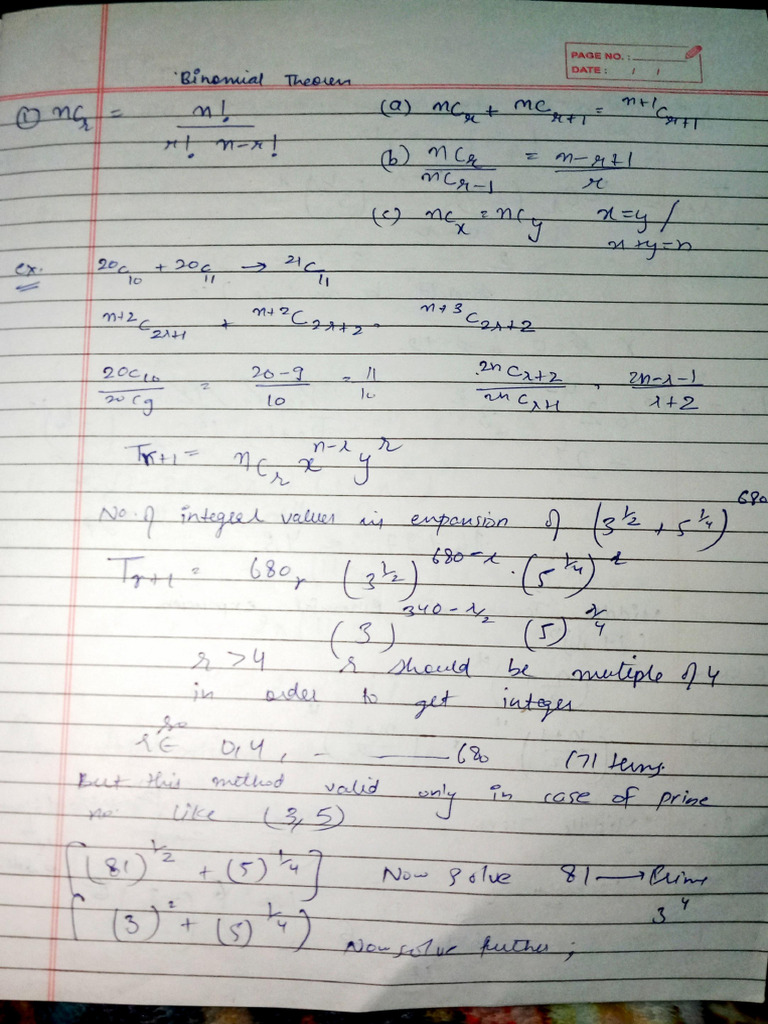 PAGE NO.:
DATE: / /
Binomial Theorem
① nCr = n! / r! n-r! (a) nCr + nCr+1 = n+1Cr+1
(b) nCr / nCr-1 = n-r+1 / r
(c) nCx = nCy x=y /
x+y=n
ex. 20C10 + 20C11 → 21C11
n+2C2r+1 + n+2C2r+2 . n+3C2r+2
20C10 / 20C9 = 20-9 / 10 = 11 / 10 2nCr+2 / 2nCr+1 . 2n-r-1 / r+2
Tr+1 = nCr x^n-r y^r
No. of integral values in expansion of (3^1/2 + 5^1/4)^680
Tr+1 = 680r (3^1/2)^680-r . (5^1/4)^r
(3)^340-r/2 (5)^r/4
r > 4 r should be multiple of 4
in order to get integer
so
r ∈ 0,4, - ——— 680 171 terms.
But this method valid only in case of prime
no. like (3,5)
[(81)^1/2 + (5)^1/4] Now solve 81 → Prime
3^4
[(3)^2 + (5)^1/4) Now solve further ;